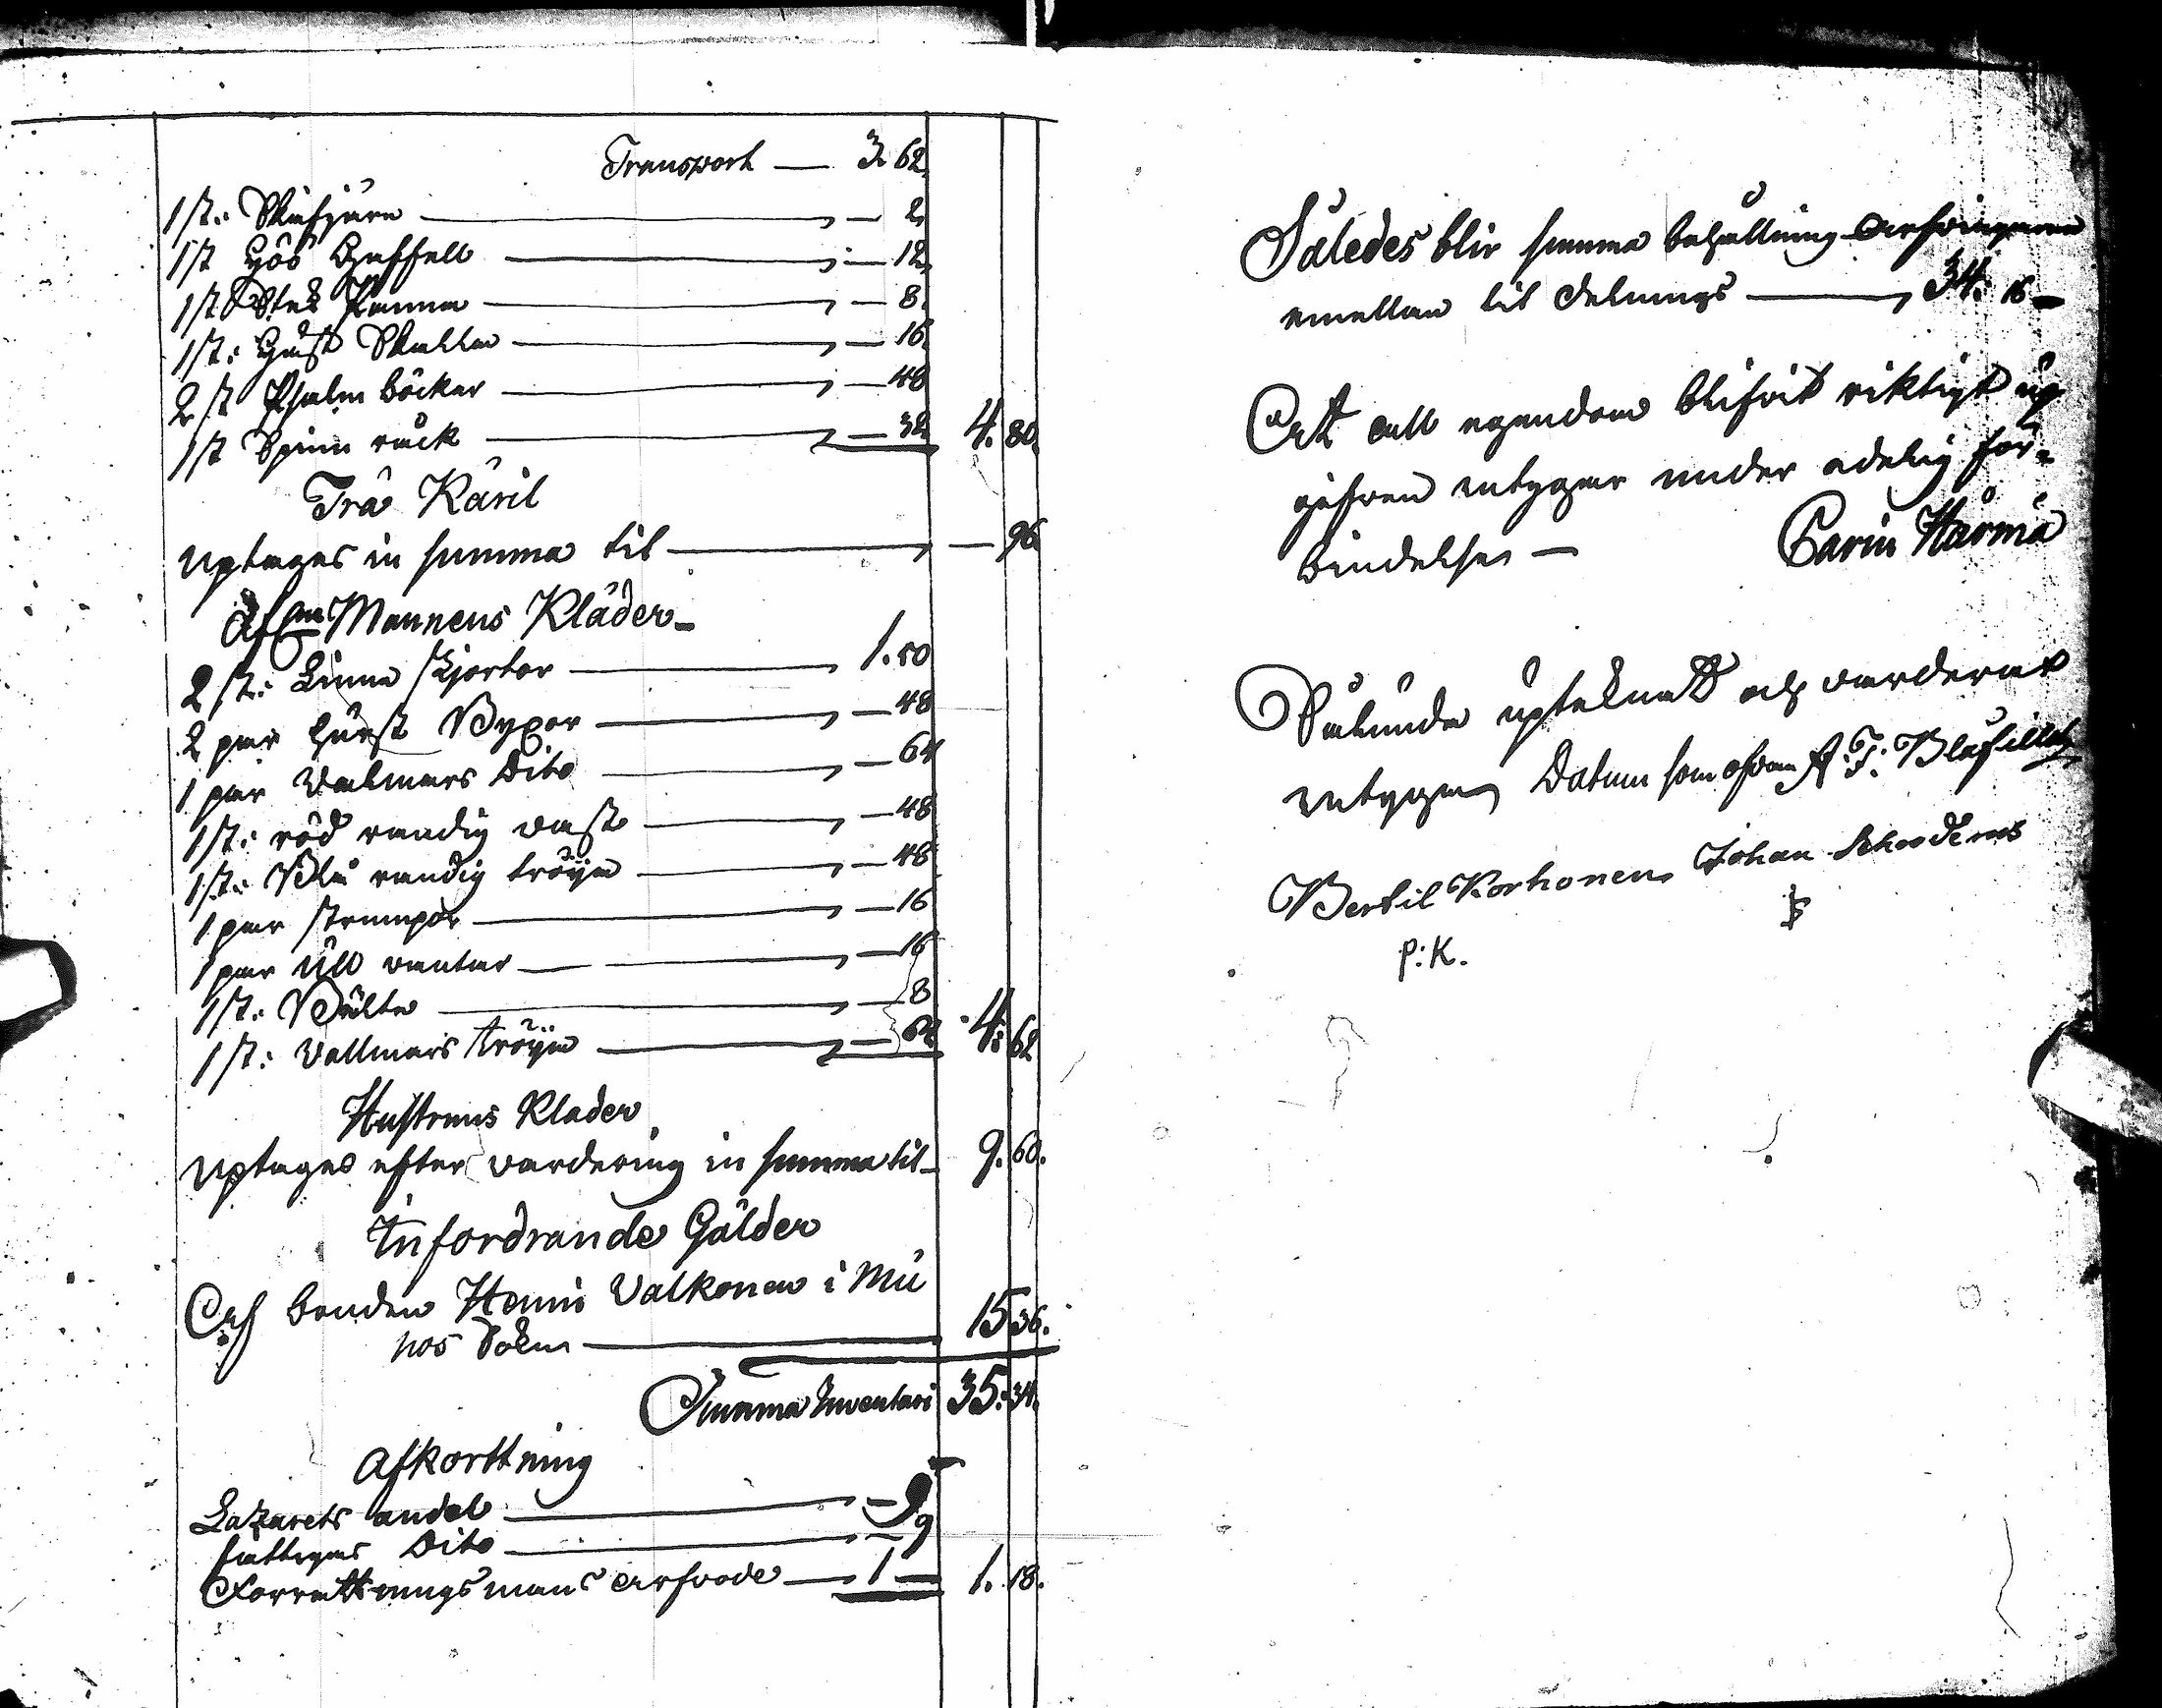 Transport — 3. 62.
1 st: Skafjärn — 2.
1 st Höö Gaffell — 12.
1 st Stek Panna — 8.
1 st: Häst Skälla — 16.
2 st Psalm böcker — 48
1 st Spinn råck — 32. 4. 80.
Trä Käril
uptages in summa til — 96.
Afl. Mannens Kläder
2 st: Linne skjortor — 1. 50
2 par Byxor — 48
1 par Valmars Dito — 64
1 st: röd randig väst — 48
1 st: Blå randig tröija — 48
1 par strumpor — 16
1 par Ull vantar — 16
1 st: Bälte — 8
1 st: Vallmars tröija — 64 4: 62
Hustruns Kläder
uptages efter värdering in summa til 9. 60.
Infordrande Gälder
Af bonden Henric Valkonen i Mu
hos Sokn — 15 36.
Summa Inventarii 35: 34.
Afkorttning
Lazarets andel — 9
fattigas Dito — 9
Förrättningsmans arfvode — 1 — 1. 18.
Således blir summa behållning arfvingarna
emellan til delnings — 34: 16 —
Att all egendom blifvit riktigt up
gifven intygar under edelig för-
bindelse — Carin Härmä
Sålunda uptecknat och värderat
intyga Datum som ofvan A: F: Blåfield
Bertil Korhonen Johan Schoderus
P: K.